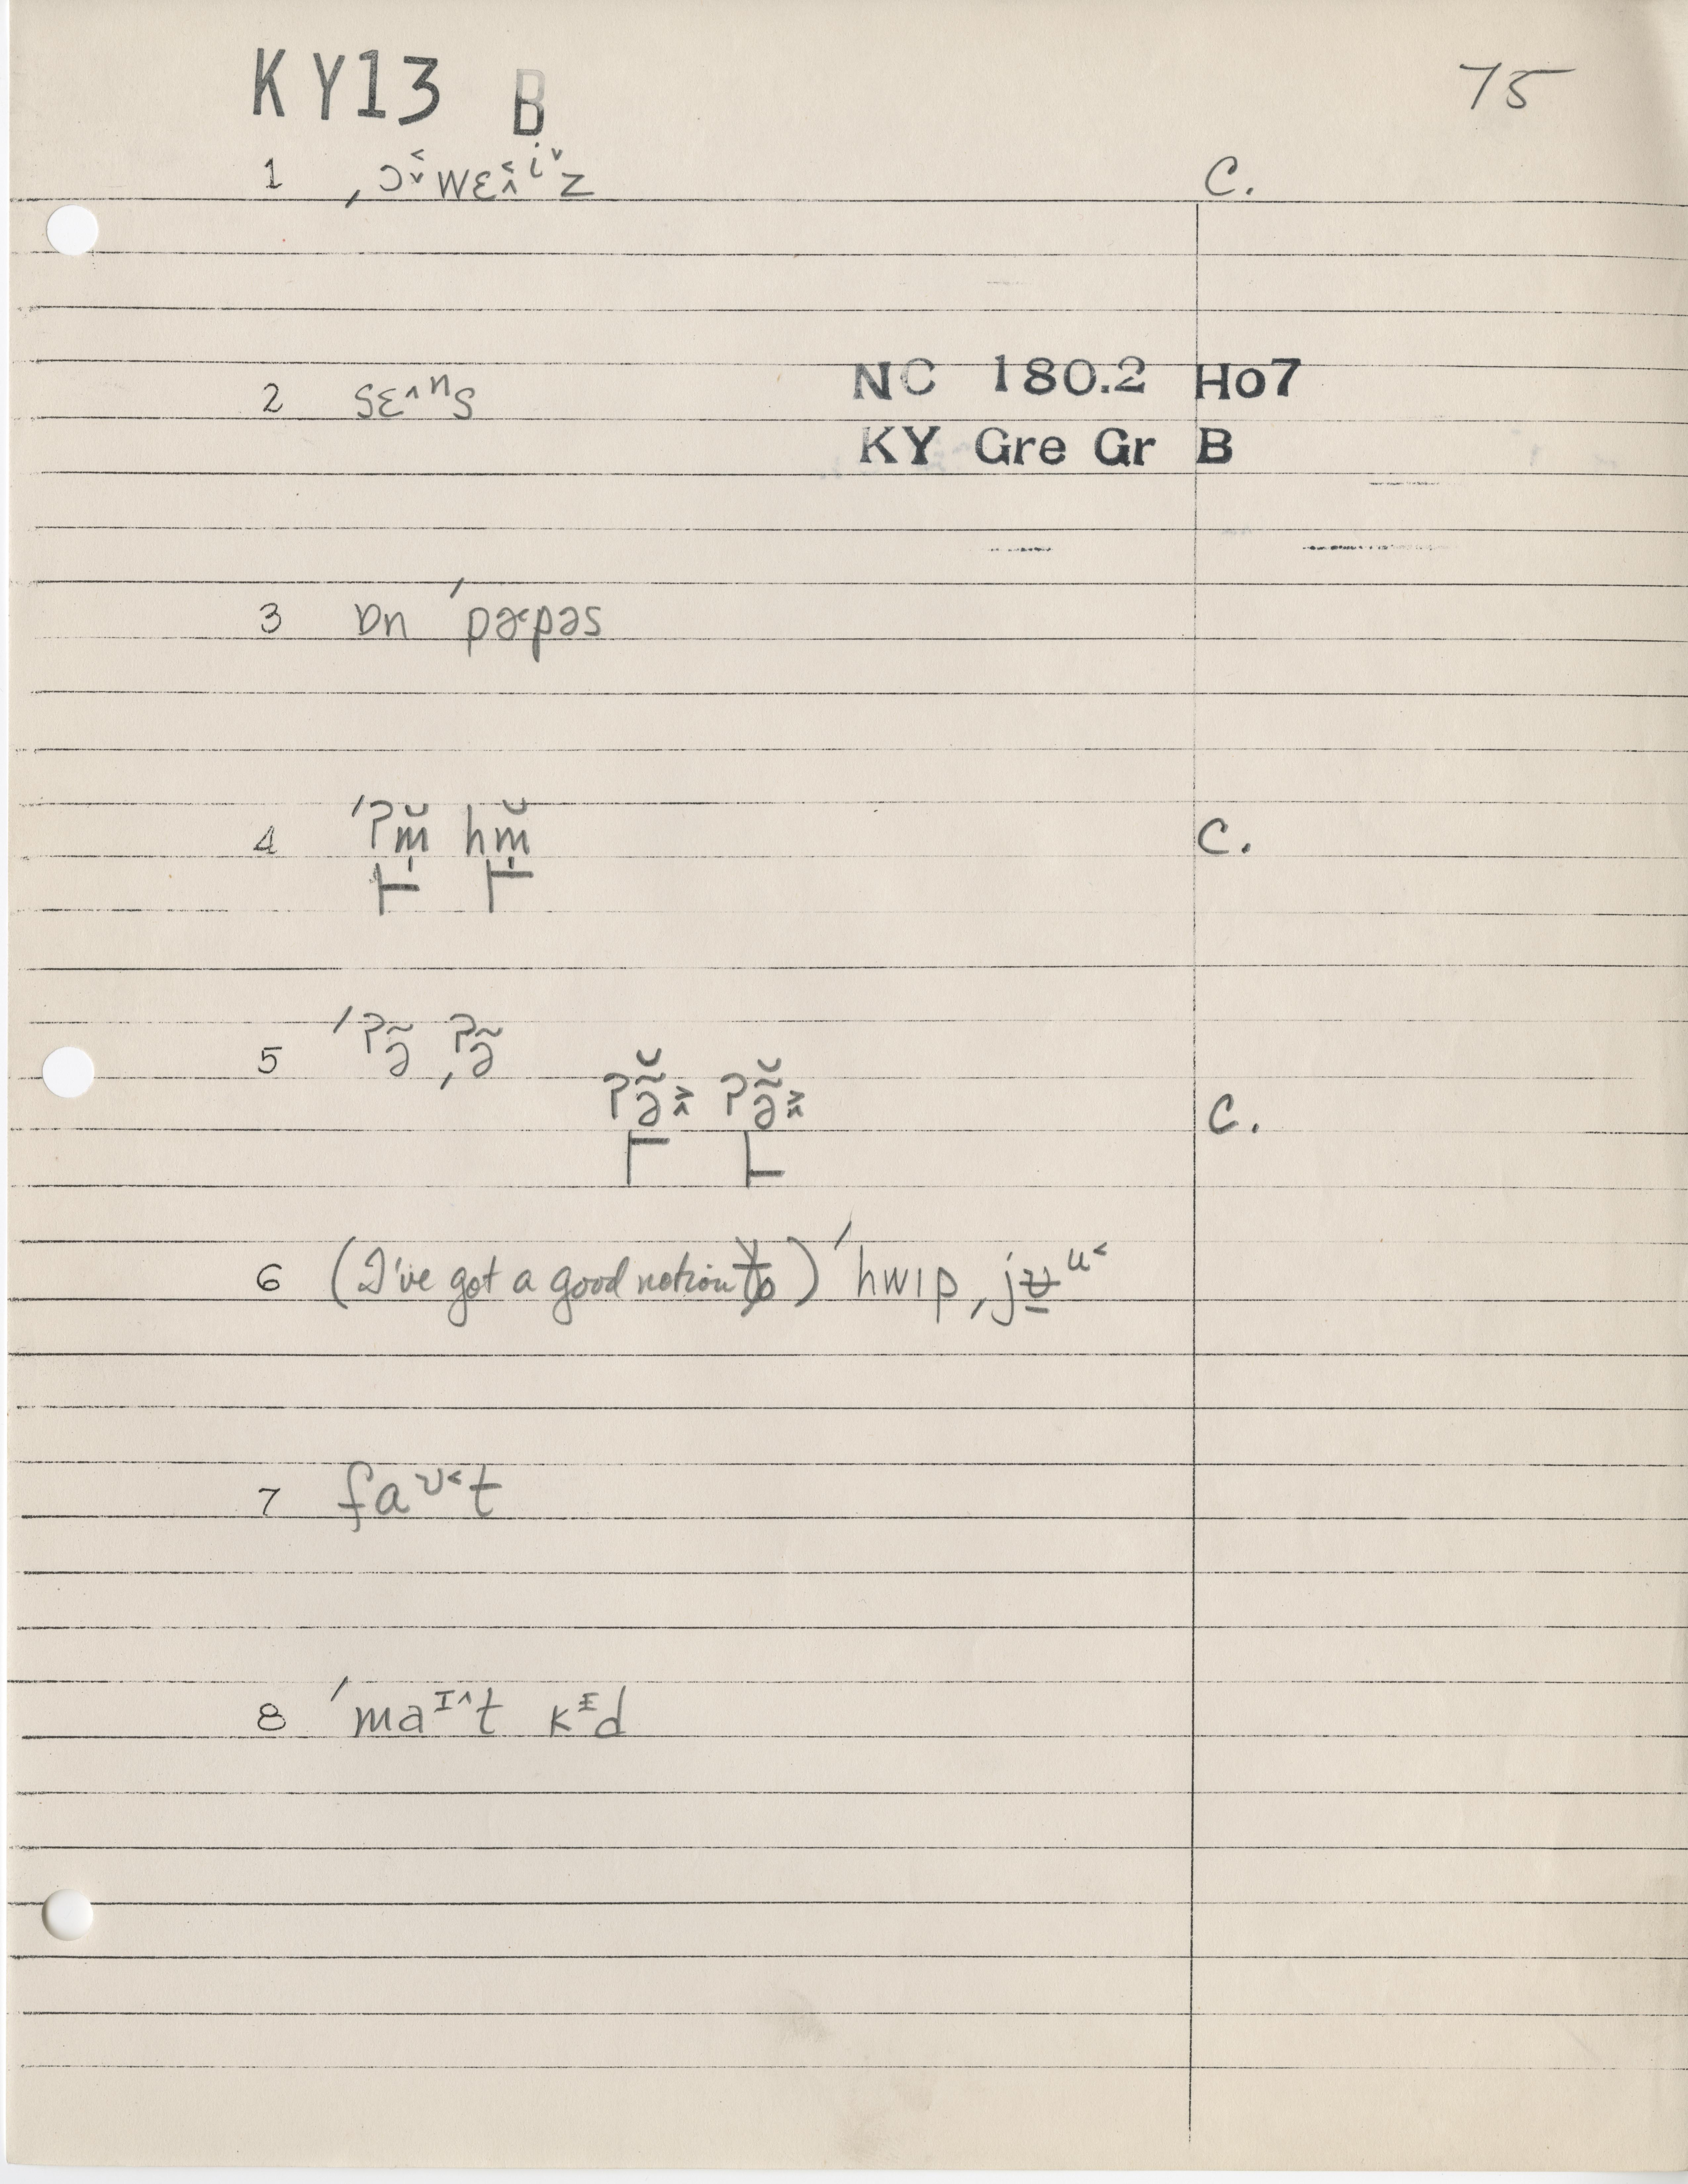 KY13 B 75
1 ˌɔ˂˅wɛ˂˄ⁱ˅z C.
2 sɛ˄ⁿs
NC 180.2 Ho7
KY Gre Gr B
3 ɒn ˈpɚpəs
4 ˈʔm̩̆ hm̩̆ C.
5 ˈʔə̃ ˌʔə̃
ʔə̃̆˃˄ ʔə̃̆˃˄ C.
6 (I've got a good notion to) ˈhwɪp ˌjʊ̵̱ᵘ˂
7 faᶷ˂t
8 ˈmaᶦ˄t kᵻd